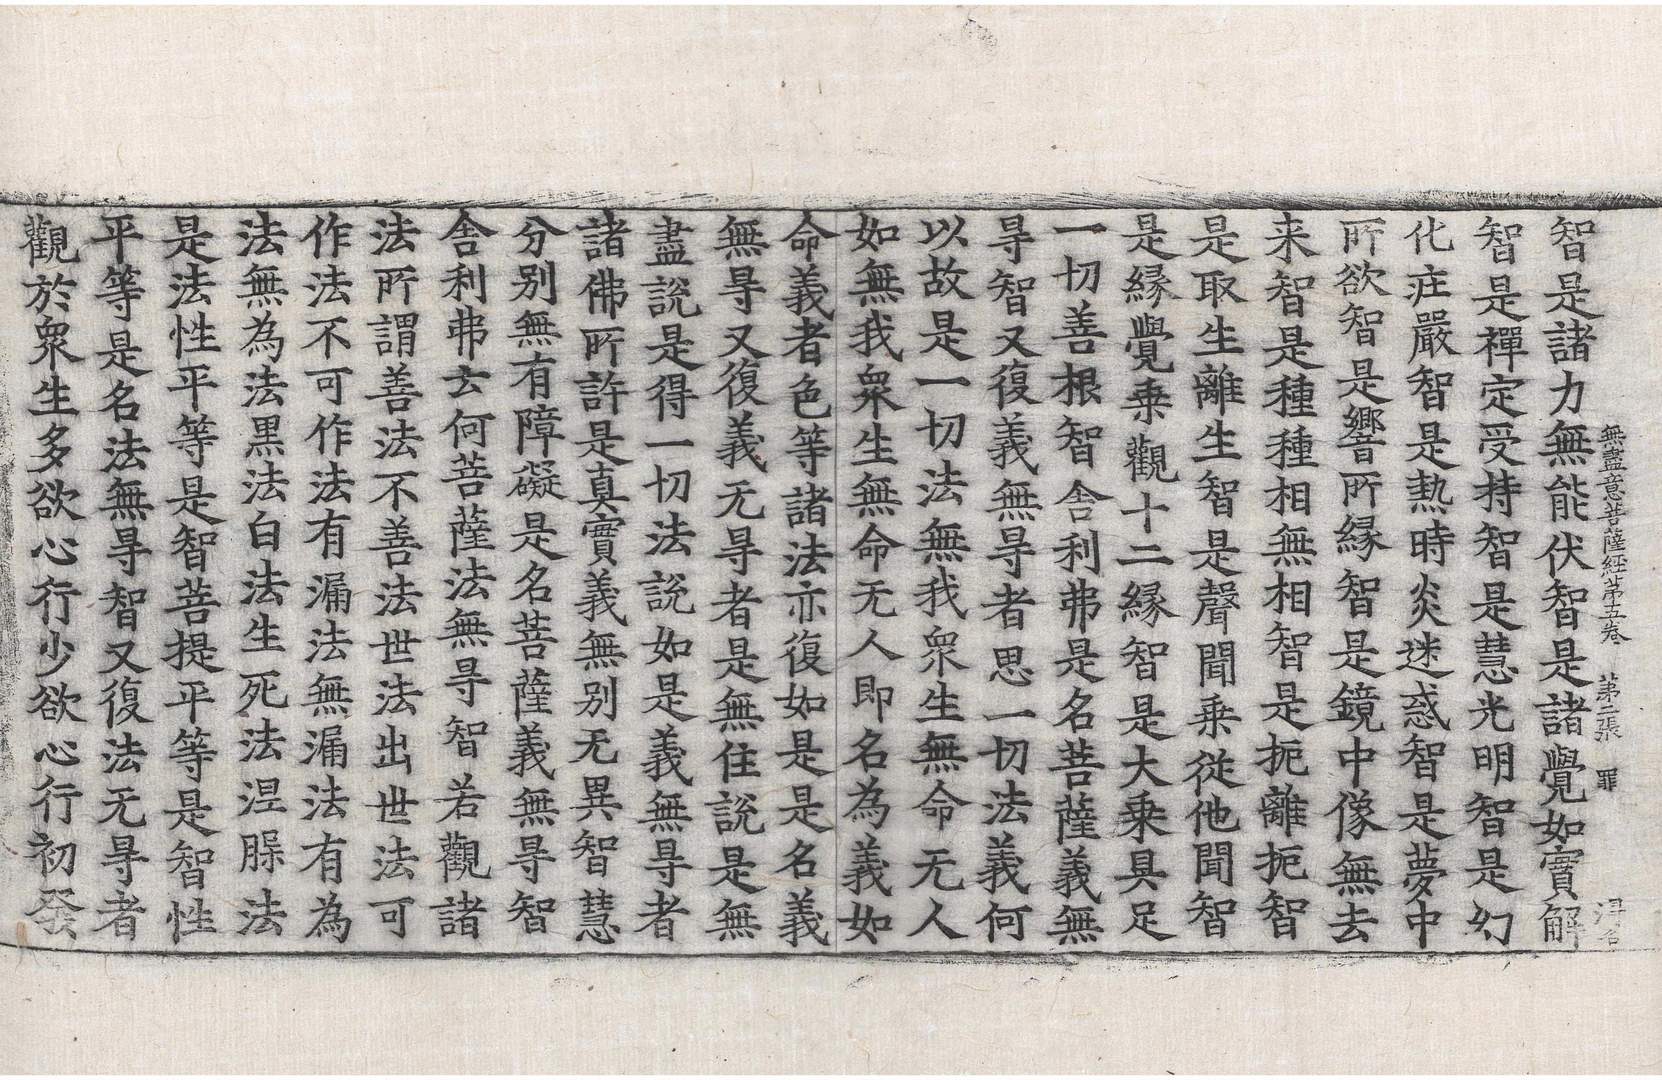 無盡意菩薩経苐五卷 苐二張 罪
智是諸力無能伏智是諸覺如實解
智是禪定受持智是慧光明智是幻
化疘嚴智是熱時炎迷惑智是夢中
所欲智是響所緣智是鏡中像無去
来智是種種相無相智是扼離扼智
是取生離生智是聲聞乗從他聞智
是緣覺乗觀十二緣智是大乗具足
一切善根智舍利弗是名菩薩義無
㝵智又復義無㝵者思一切法義何
以故是一切法無我衆生無命无人
如無我衆生無命无人即名為義如
命義者色等諸法亦復如是是名義
無㝵又復義无㝵者是無住說是無
盡說是得一切法說如是義無㝵者
諸佛所許是真實義無別无異智慧
分別無有障礙是名菩薩義無㝵智
舍利弗云何菩薩法無㝵智若觀諸
法所謂善法不善法世法出世法可
作法不可作法有漏法無漏法有為
法無為法黒法白法生死法涅槃法
是法性平等是智菩提平等是智性
平等是名法無㝵智又復法无㝵者
觀於衆生多欲心行少欲心行初發